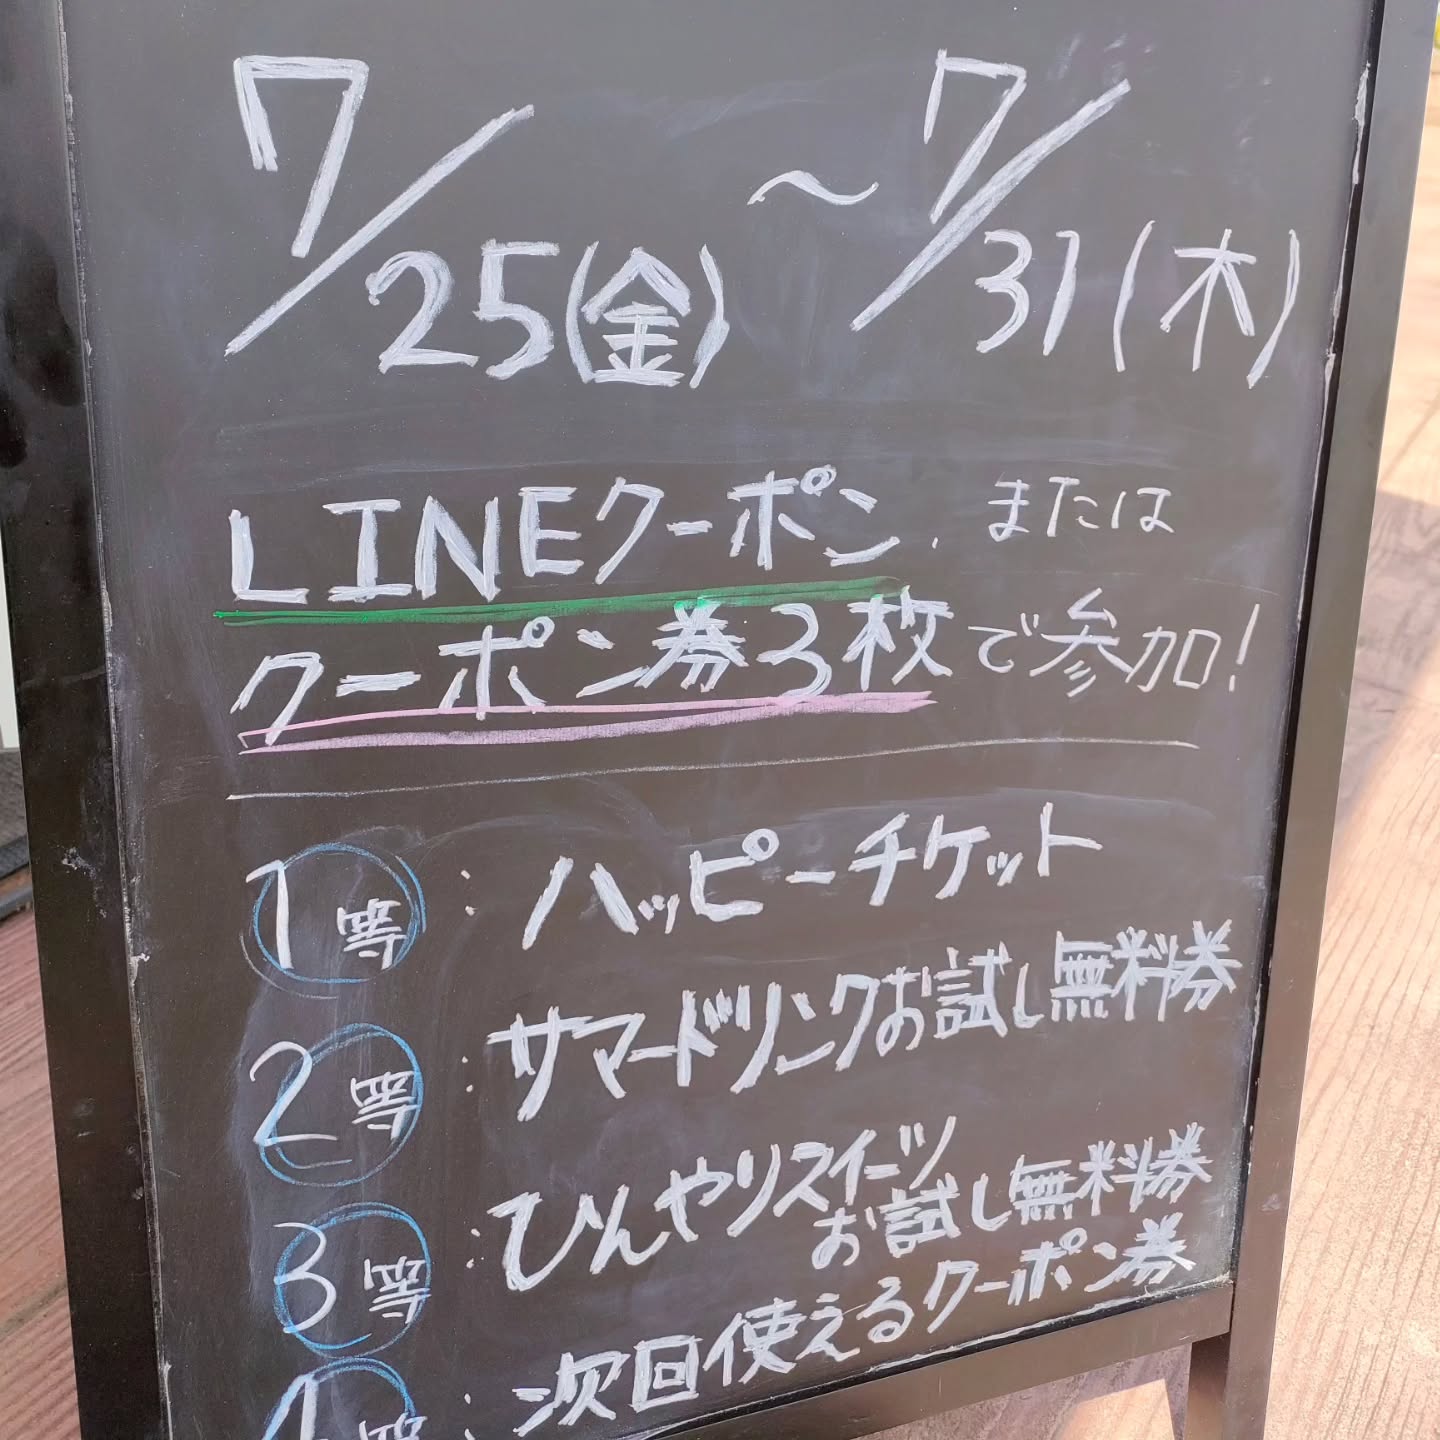 7/25(金) 〜 7/31(木)
LINEクーポン、または
クーポン券3枚で参加!
1等:ハッピーチケット
2等:サマードリンクお試し無料券
3等:ひんやりスイーツ
お試し無料券
4等:次回使えるクーポン券